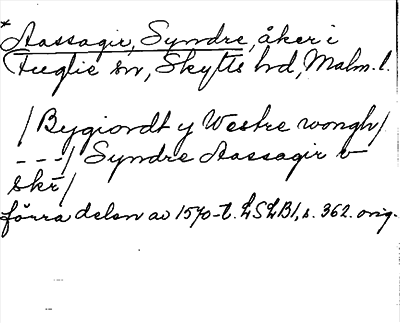 * Aassagir, Syndre, åker i
Fuglie sn, Skytts hd, Malm. l.
/Bygiordt y Westre wongh/
---/ Syndre Aassagir v
skr/
förra delen av 1570-t. LSLB1, s. 362. orig.